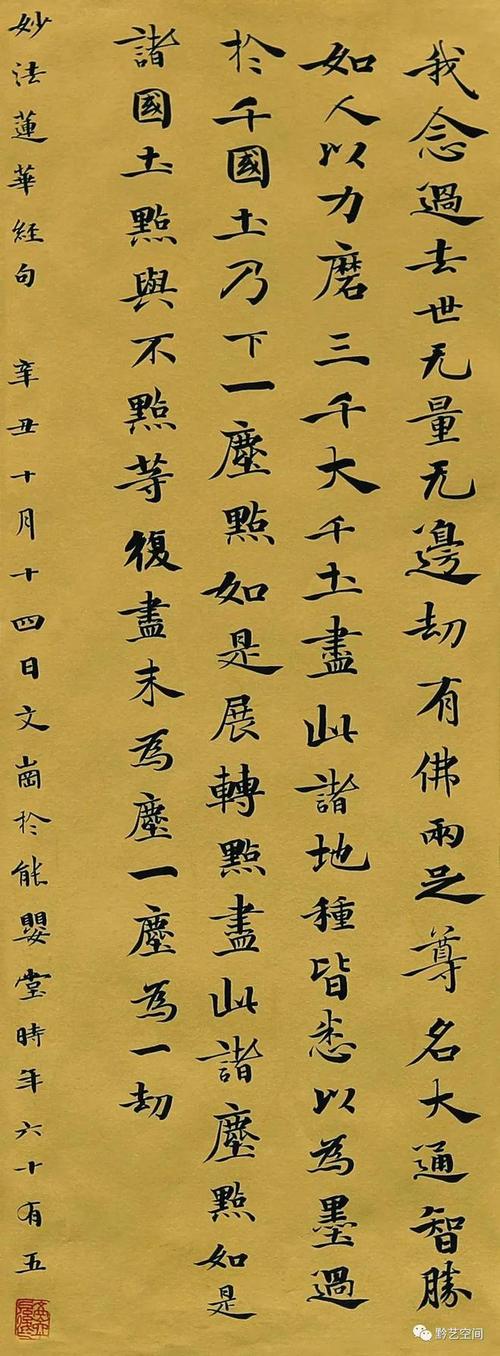 我念過去世无量无邊劫有佛兩足尊名大通智勝
如人以力磨三千大千土盡此諸地種皆悉以為墨過
於千國土乃下一塵點如是展轉點盡此諸塵點如是
諸國土點與不點等復盡末為塵一塵為一劫
妙法蓮華経句 辛丑十月十四日文崗於能嬰堂時年六十有五
黔艺空间